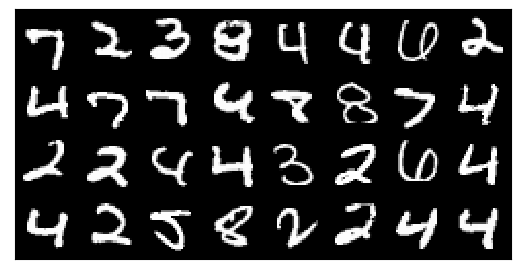 7 2 3 8 4 4 6 2
4 7 7 4 8 8 7 4
2 2 4 4 3 2 6 4
4 2 5 8 2 2 4 4